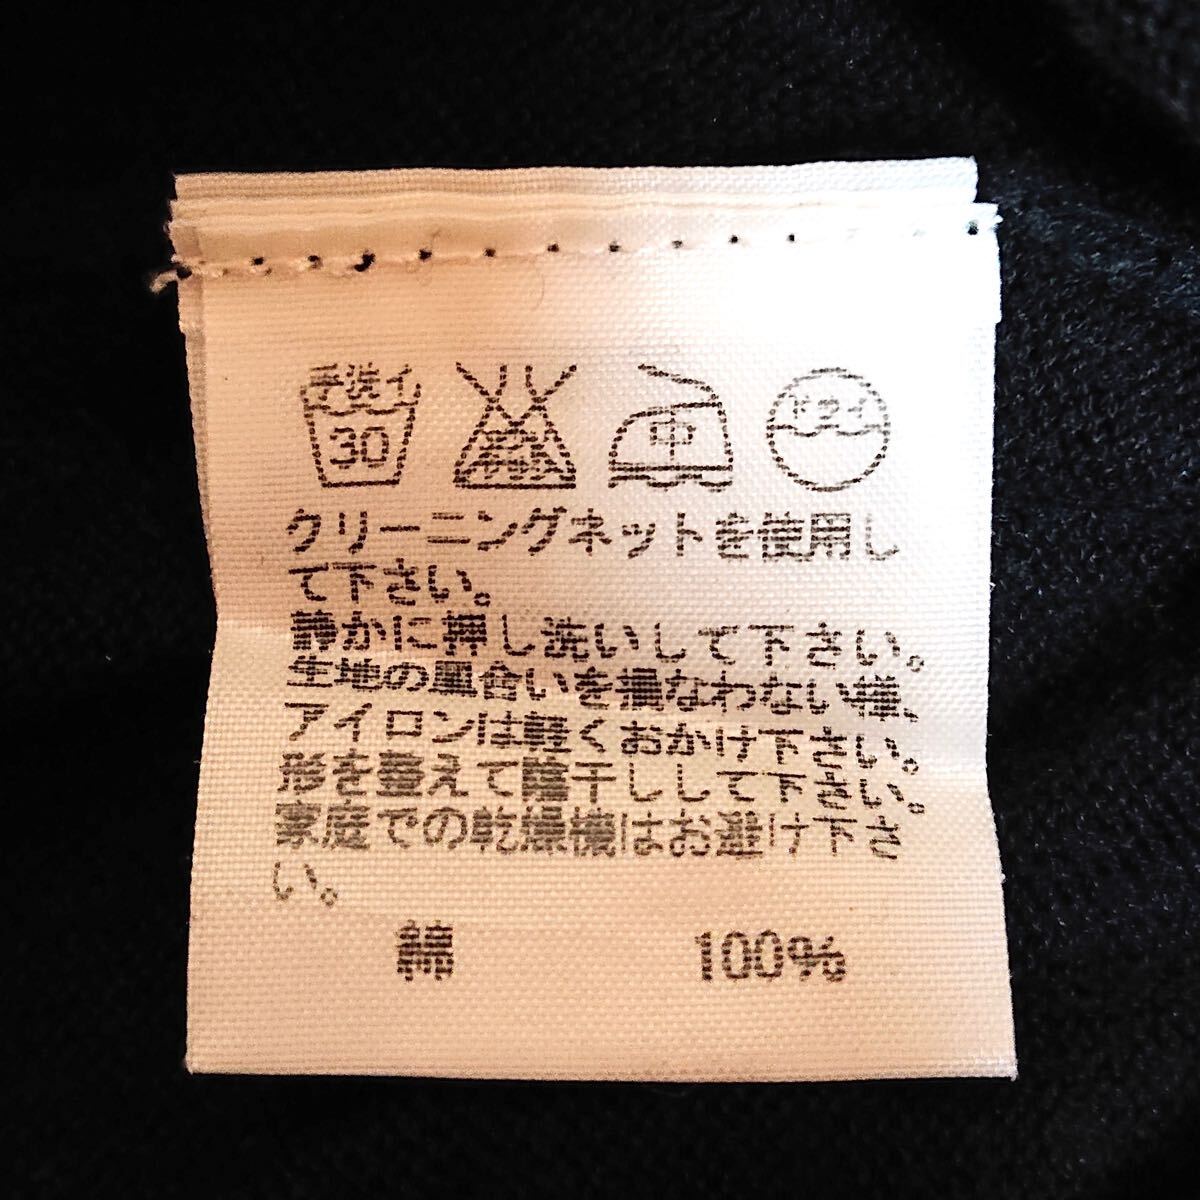 手洗イ
30
エンソサラシ
中
ドライ
クリーニングネットを使用し
て下さい。
静かに押し洗いして下さい。
生地の風合いを損なわない様、
アイロンは軽くおかけ下さい。
形を整えて陰干しして下さい。
家庭での乾燥機はお避け下さ
い。
綿 100%